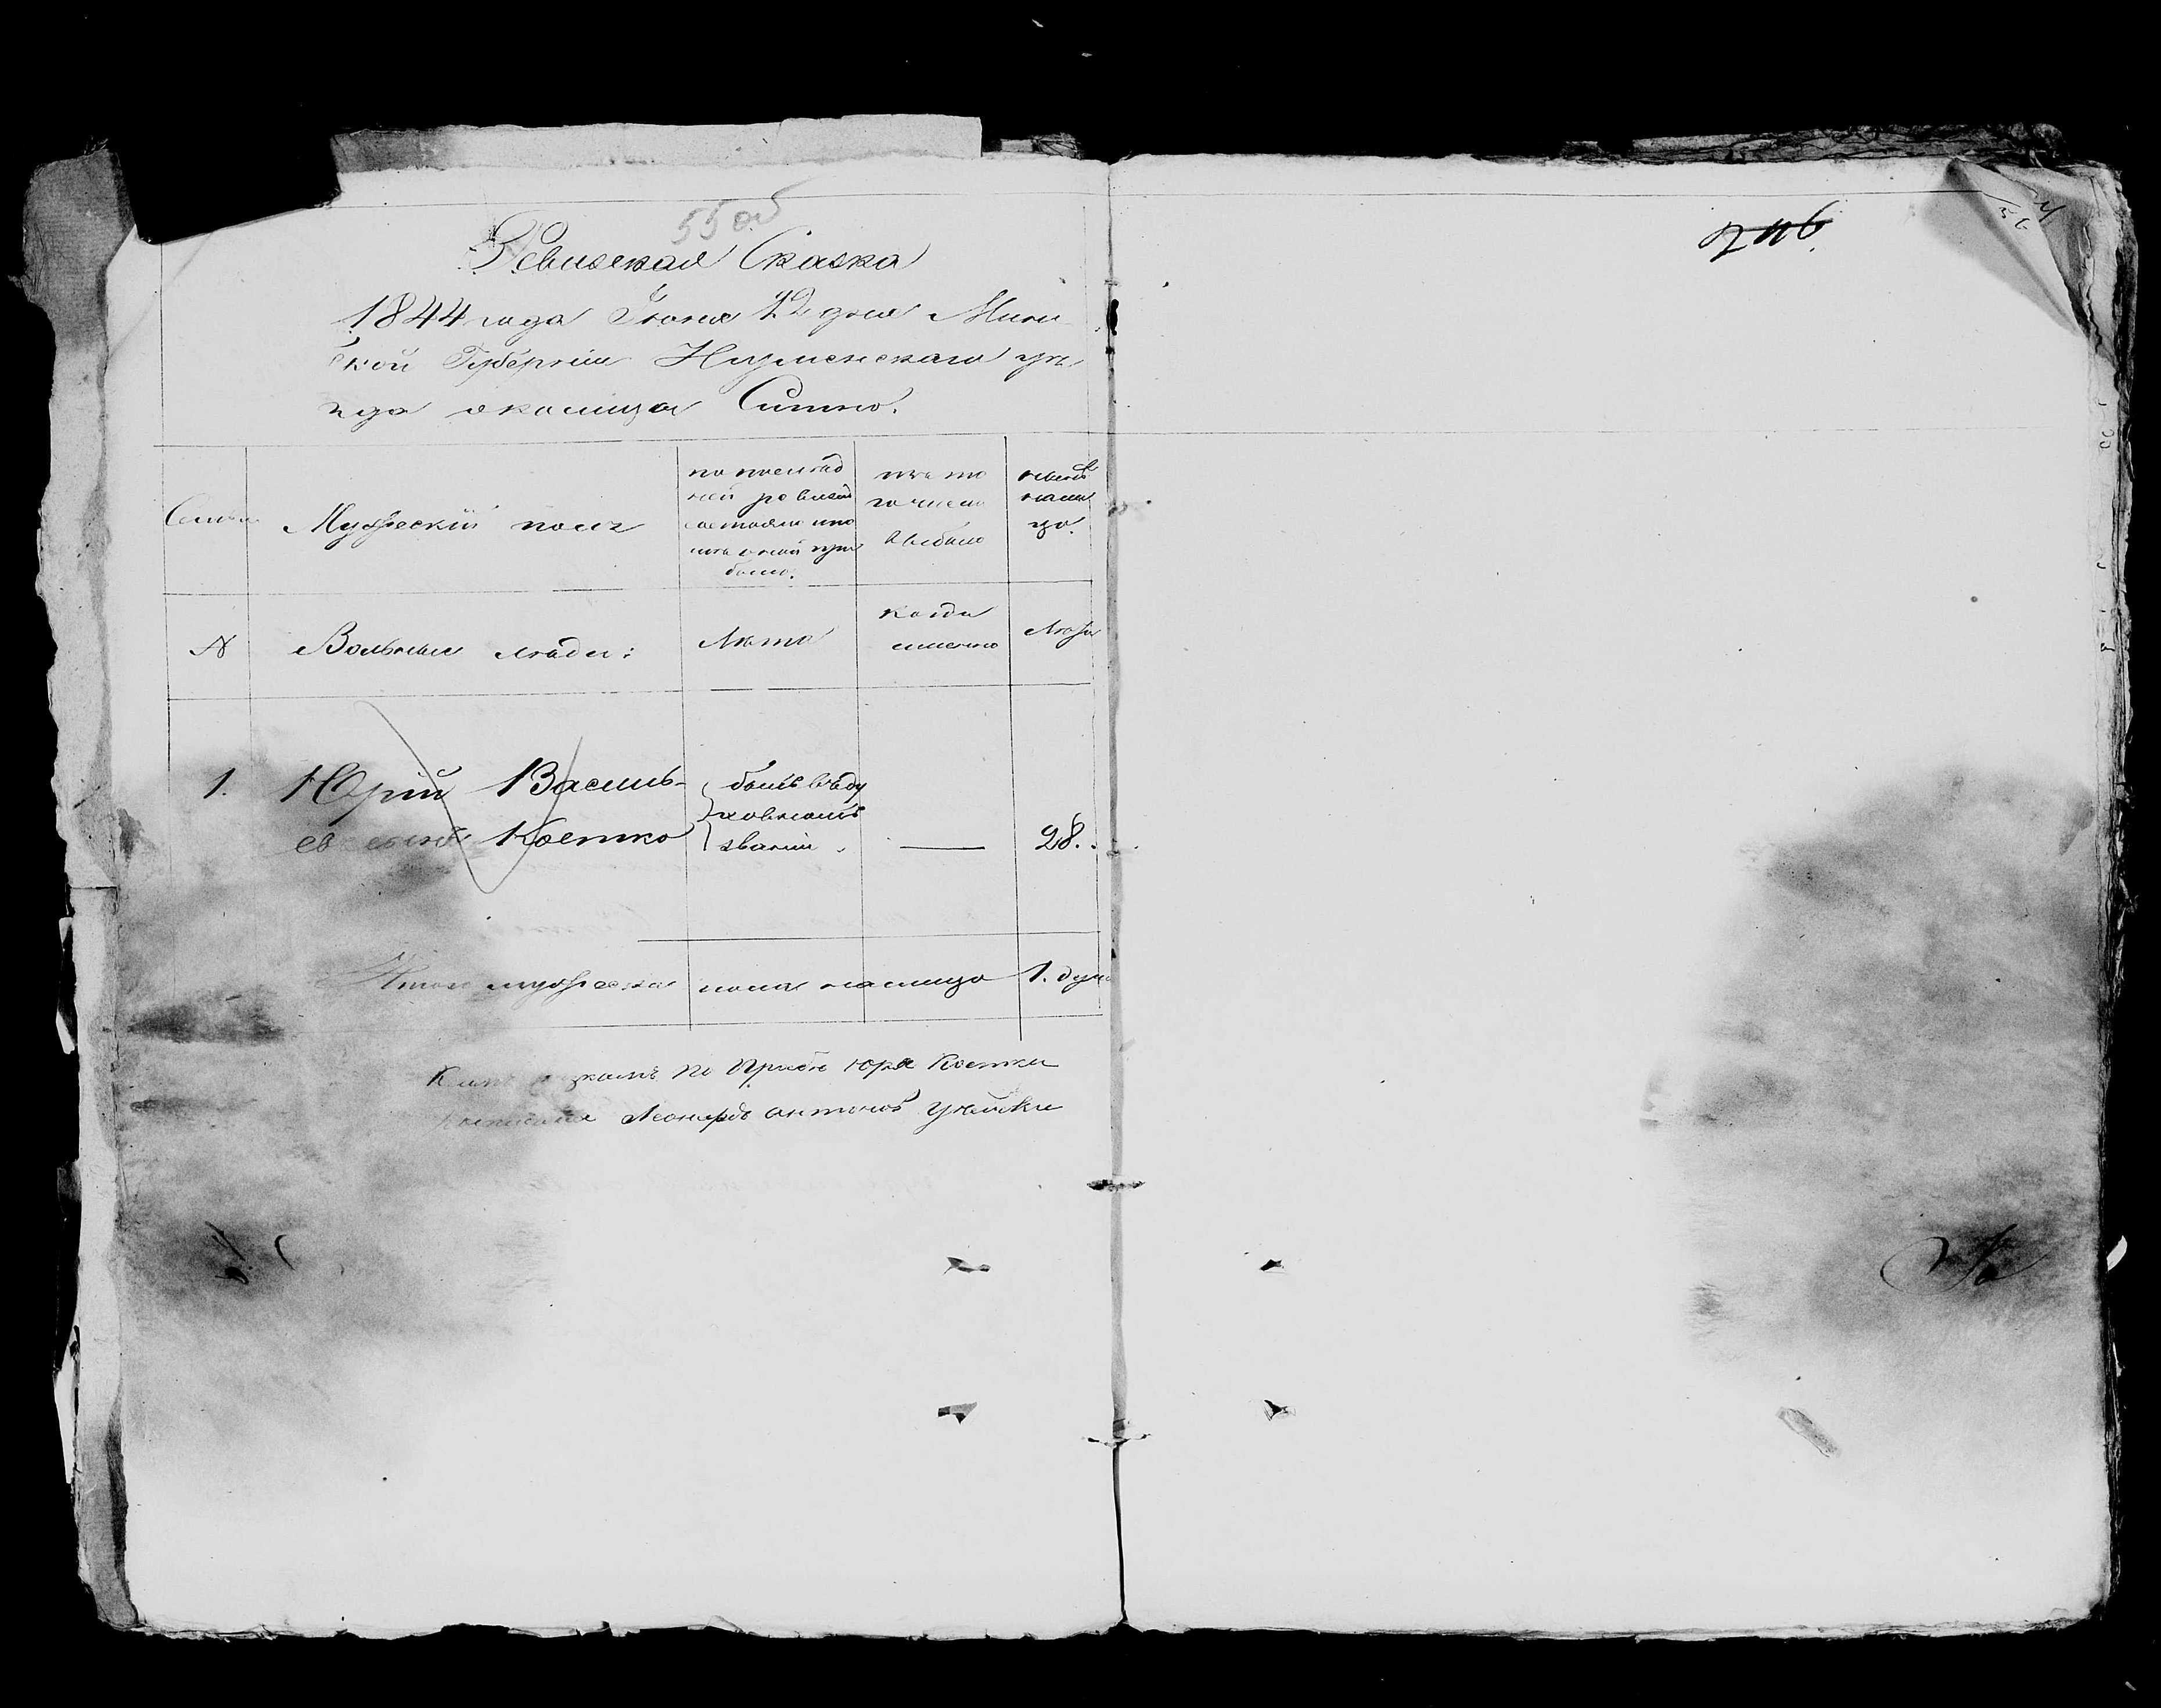 55 об
Ревизская Сказка
1844 года Июня 22 дня Мин
ской Губерніи Игуменскаго уѣ
зда околица Ситно.
Семьи
Мужескій полъ
по послѣд
ней ревизіи
состояло или
послѣ оной при
было.
изъ то
го числа
выбыло
нынѣ
на ли
цо.
№
Вольные люди:
Лѣта
когда
именно
Лѣта
1.
Юрій Василь-
евъ сынъ Костко
былъ въ ду
ховномъ
званіи
—
28.
Итого мужеска пола на лицо 1. душа
по Юрія Костки
Леонардъ Антоновъ
746.
56